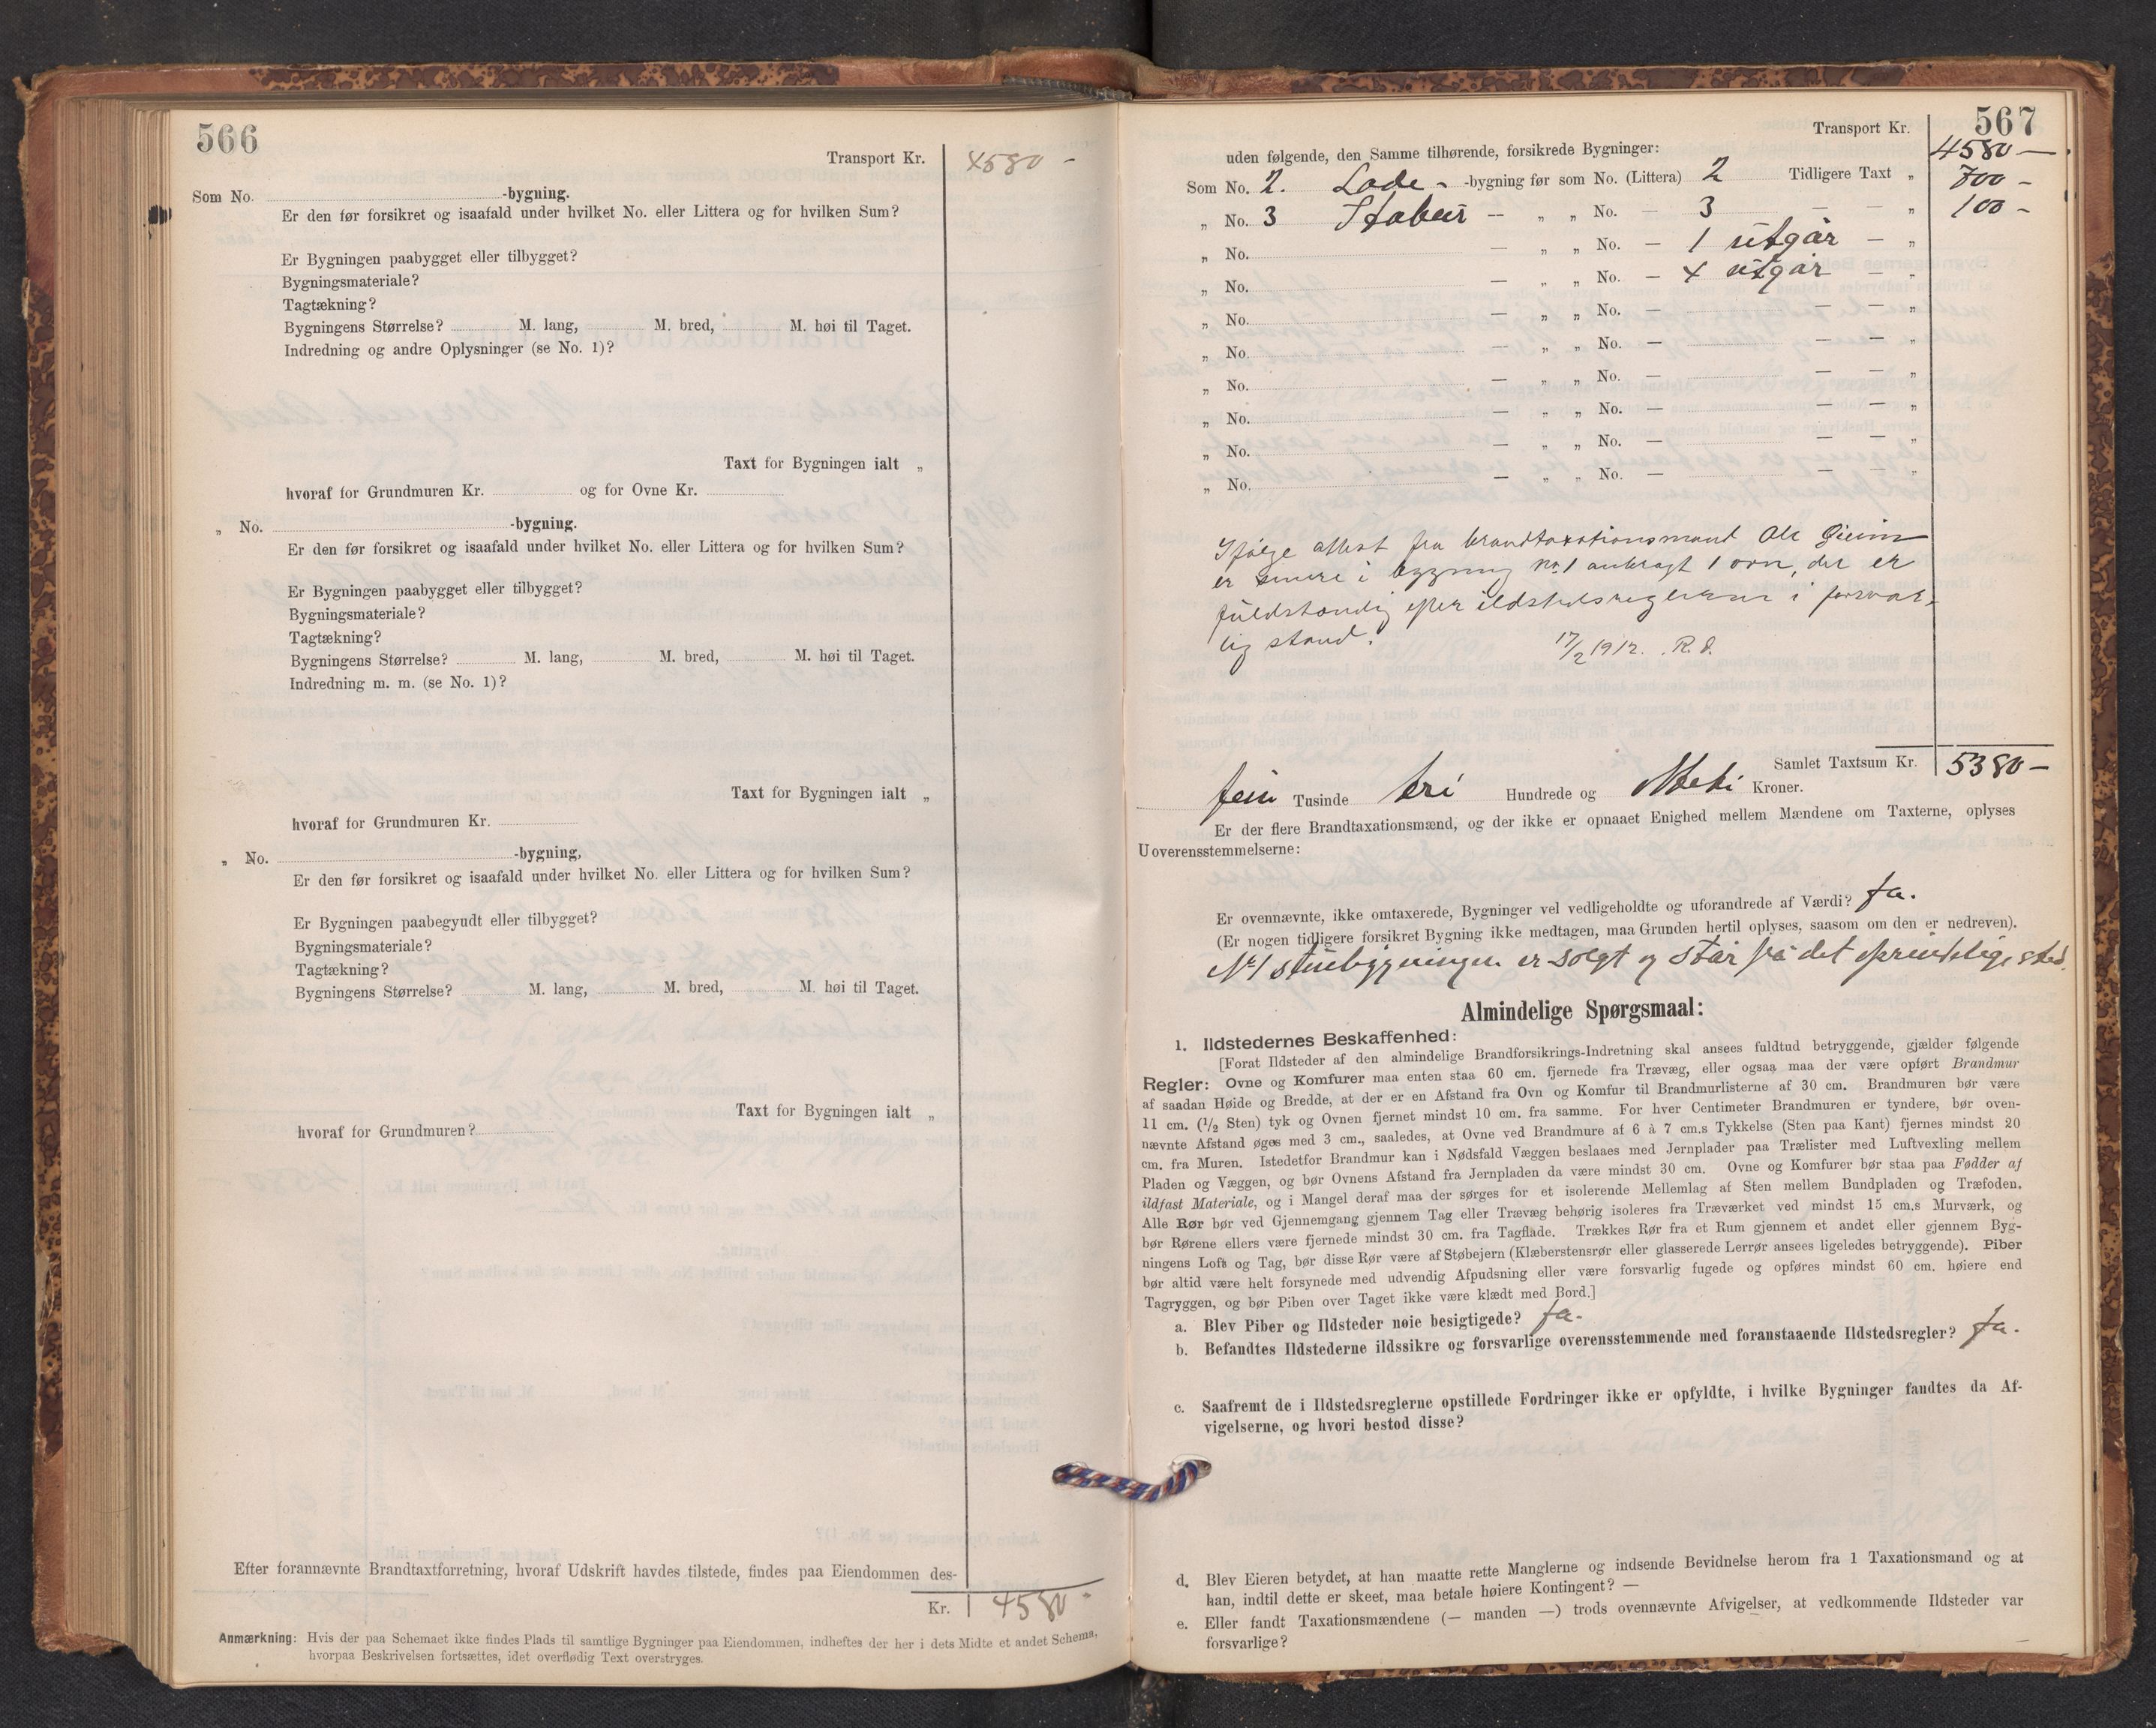 566
Transport Kr. 4580 -
Som No. -bygning.
Er den før forsikret og isaafald under hvilket No. eller Littera og for hvilken Sum?
Er Bygningen paabygget eller tilbygget?
Bygningsmateriale?
Tagtækning?
Bygningens Størrelse? M. lang, M. bred, M. høi til Taget.
Indredning og andre Oplysninger (se No. 1)?
Taxt for Bygningen ialt „
hvoraf for Grundmuren Kr. og for Ovne Kr.
„ No. -bygning.
Er den før forsikret og isaafald under hvilket No. eller Littera og for hvilken Sum?
Er Bygningen paabygget eller tilbygget?
Bygningsmateriale?
Tagtækning?
Bygningens Størrelse? M. lang, M. bred, M. høi til Taget.
Indredning m. m. (se No. 1)?
Taxt for Bygningen ialt „
hvoraf for Grundmuren Kr.
„ No. -bygning,
Er den før forsikret og isaafald under hvilket No. eller Littera og for hvilken Sum?
Er Bygningen paabegyndt eller tilbygget?
Bygningsmateriale?
Tagtækning?
Bygningens Størrelse? M. lang, M. bred, M. høi til Taget.
Taxt for Bygningen ialt „
hvoraf for Grundmuren?
Efter forannævnte Brandtaxtforretning, hvoraf Udskrift havdes tilstede, findes paa Eiendommen des-
Kr. 4580 -
Anmærkning: Hvis der paa Schemaet ikke findes Plads til samtlige Bygninger paa Eiendommen, indheftes der her i dets Midte et andet Schema,
hvorpaa Beskrivelsen fortsættes, idet overflødig Text overstryges.
567
Transport Kr. 4580 —
uden følgende, den Samme tilhørende, forsikrede Bygninger:
Som No. 2. Lade - -bygning før som No. (Littera) 2 Tidligere Taxt „ 700 -
„ No. 3 Stabur — „ „ No. — 3 — — „ 100 -
„ No. — „ „ No. — 1 utgår — „
„ No. — „ „ No. — 4 utgår — „
„ No. — „ „ No. — — — „
„ No. — „ „ No. — — — „
„ No. — „ „ No. — — — „
„ No. — „ „ No. — — — „
„ No. — „ „ No. — — — „
„ No. — „ „ No. — — — „
Ifølge attest fra brandtaxationsmand Ole
er senere i bygning No 1 anbragt 1 ovn, der er
fuldstændig efter ildstedsreglerne i forsvar-
lig stand. 17/2 1912. R.d.
Samlet Taxtsum Kr. 5380 —
fem Tusinde tri Hundrede og otteti Kroner.
Er der flere Brandtaxationsmænd, og der ikke er opnaaet Enighed mellem Mændene om Taxterne, oplyses
Uoverensstemmelserne:
Er ovennævnte, ikke omtaxerede, Bygninger vel vedligeholdte og uforandrede af Værdi? Ja.
(Er nogen tidligere forsikret Bygning ikke medtagen, maa Grunden hertil oplyses, saasom om den er nedreven).
No 1 stuebygningen er solgt og står på det oprindelige sted.
Almindelige Spørgsmaal:
1. Ildstedernes Beskaffenhed:
[Forat Ildsteder af den almindelige Brandforsikrings-Indretning skal ansees fuldtud betryggende, gjælder følgende
Regler: Ovne og Komfurer maa enten staa 60 cm. fjernede fra Trævæg, eller ogsaa maa der være opført Brandmur
af saadan Høide og Bredde, at der er en Afstand fra Ovn og Komfur til Brandmurlisterne af 30 cm. Brandmuren bør være
11 cm. (1/2 Sten) tyk og Ovnen fjernet mindst 10 cm. fra samme. For hver Centimeter Brandmuren er tyndere, bør oven-
nævnte Afstand øges med 3 cm., saaledes, at Ovne ved Brandmure af 6 à 7 cm.s Tykkelse (Sten paa Kant) fjernes mindst 20
cm. fra Muren. Istedetfor Brandmur kan i Nødsfald Væggen beslaaes med Jernplader paa Trælister med Luftvexling mellem
Pladen og Væggen, og bør Ovnens Afstand fra Jernpladen da være mindst 30 cm. Ovne og Komfurer bør staa paa Fødder af
ildfast Materiale, og i Mangel deraf maa der sørges for et isolerende Mellemlag af Sten mellem Bundpladen og Træfoden.
Alle Rør bør ved Gjennemgang gjennem Tag eller Trævæg behørig isoleres fra Træværket ved mindst 15 cm.s Murværk, og
bør Rørene ellers være fjernede mindst 30 cm. fra Tagflade. Trækkes Rør fra et Rum gjennem et andet eller gjennem Byg-
ningens Loft og Tag, bør disse Rør være af Støbejern (Klæberstensrør eller glasserede Lerrør ansees ligeledes betryggende). Piber
bør altid være helt forsynede med udvendig Afpudsning eller være forsvarlig fugede og opføres mindst 60 cm. høiere end
Tagryggen, og bør Piben over Taget ikke være klædt med Bord.]
a. Blev Piber og Ildsteder nøie besigtigede? Ja.
b. Befandtes Ildstederne ildssikre og forsvarlige overensstemmende med foranstaaende Ildstedsregler? Ja.
c. Saafremt de i Ildstedsreglerne opstillede Fordringer ikke er opfyldte, i hvilke Bygninger fandtes da Af-
vigelserne, og hvori bestod disse?
d. Blev Eieren betydet, at han maatte rette Manglerne og indsende Bevidnelse herom fra 1 Taxationsmand og at
han, indtil dette er skeet, maa betale høiere Kontingent? —
e. Eller fandt Taxationsmændene (— manden —) trods ovennævnte Afvigelser, at vedkommende Ildsteder var
forsvarlige?